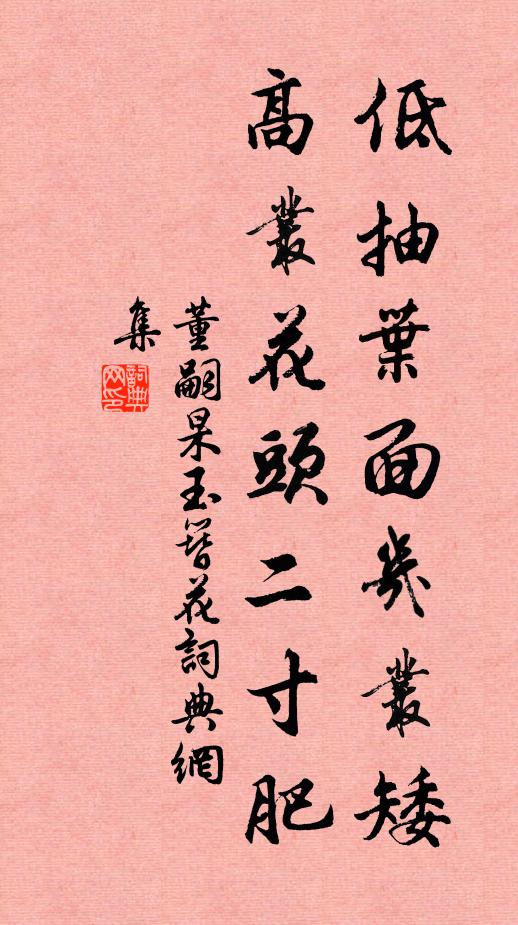 低抽葉面幾叢矮
高叢花頭二寸肥
董嗣杲玉簪花詞典網
集
詞典
网印